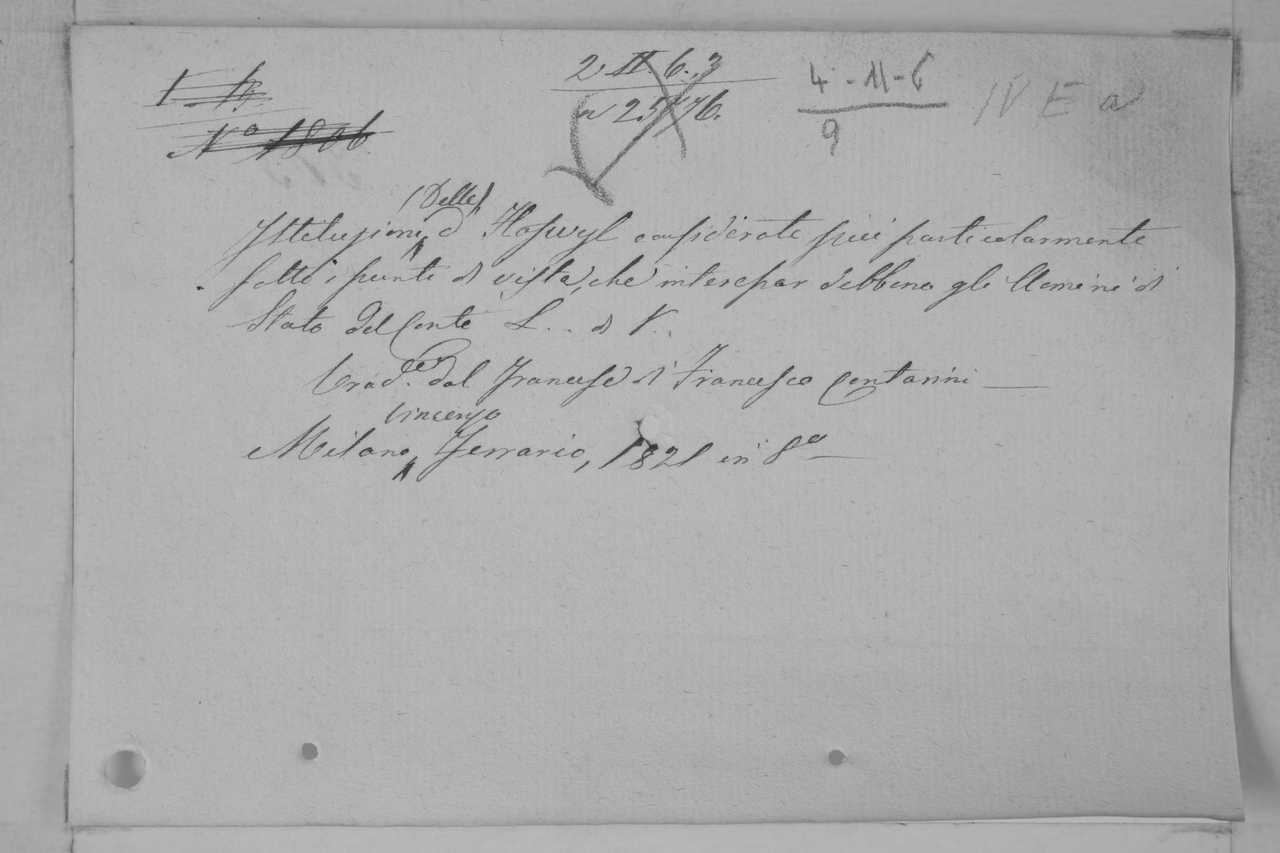 2 II 6. 3
a 25176.
4-11-6
9
IV E a
N.o 1806
(Delle)
Istituzioni d' Hofwyl considerate più particolarmente
sotto i punti di vista, che interessar debbono gli Uomini di
Stato del Conte L... di V..
Trad.e dal Francese di Francesco Contarini —
Vincenzo
Milano, Ferrario, 1821 in 8o —